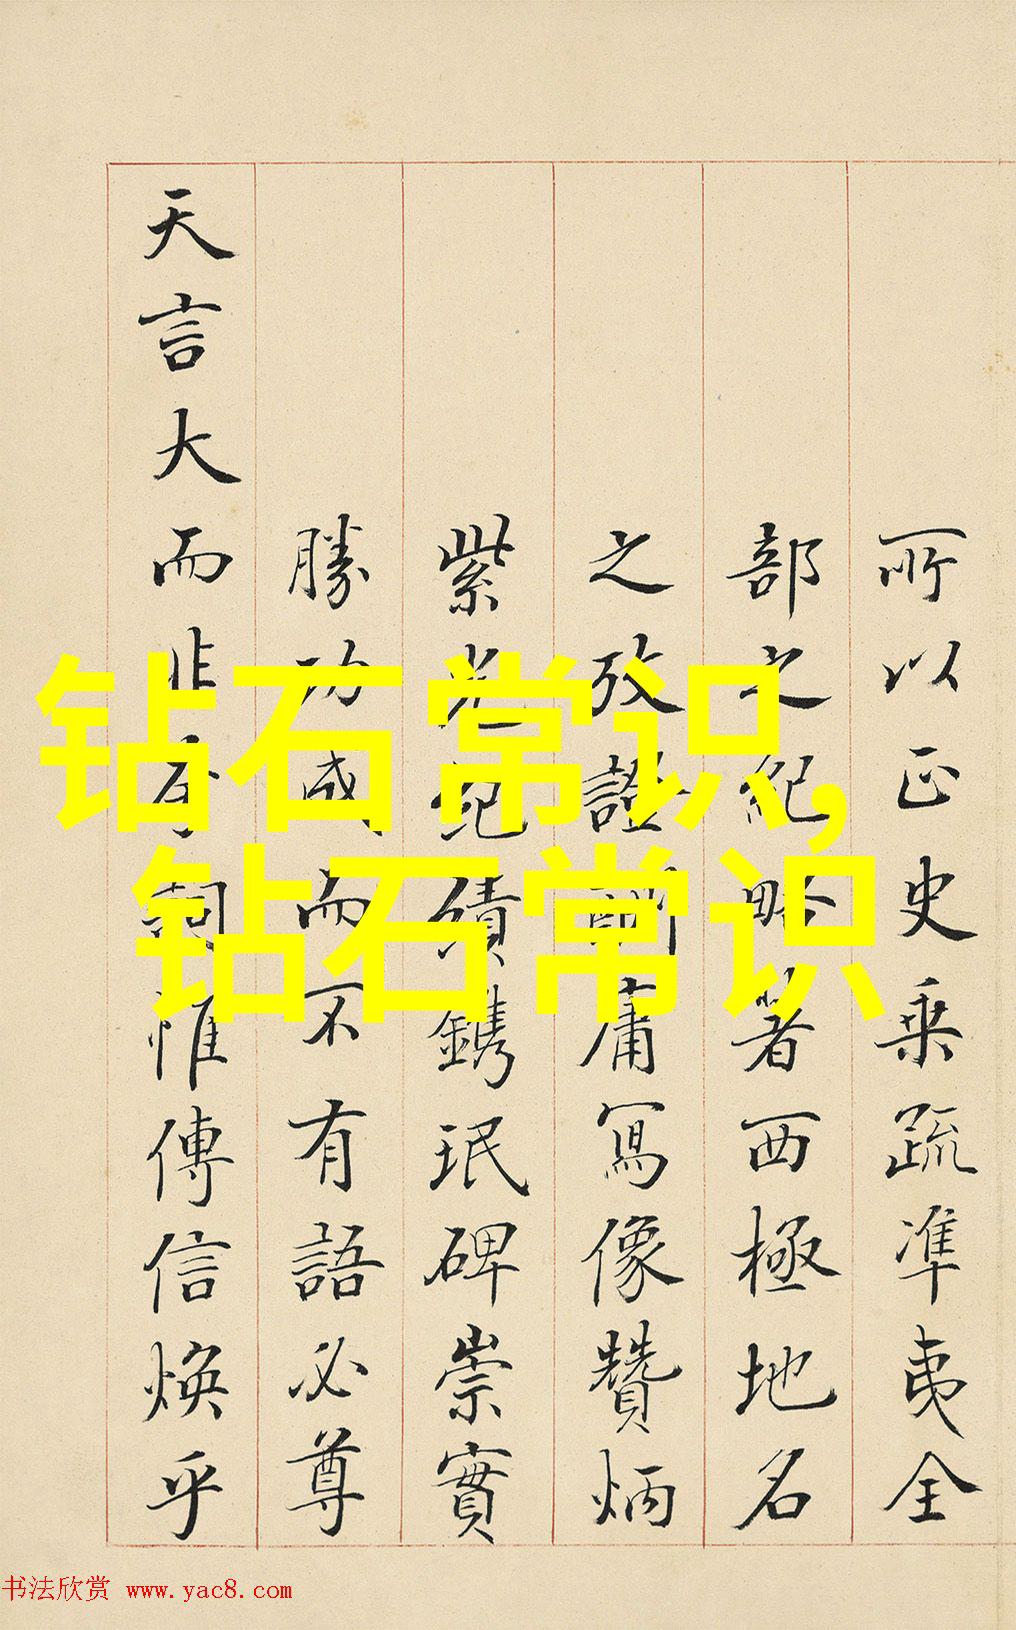 所以正史乘疏準夷全
部之紀略著西極地名
之攷證酬庸寫像贊炳
紫光紀績鐫珉碑崇實
勝功成而不有語必尊
天言大而非夸詞惟傳信煥乎
钻石常识,
钻石常识
书法欣赏 www.yac8.com